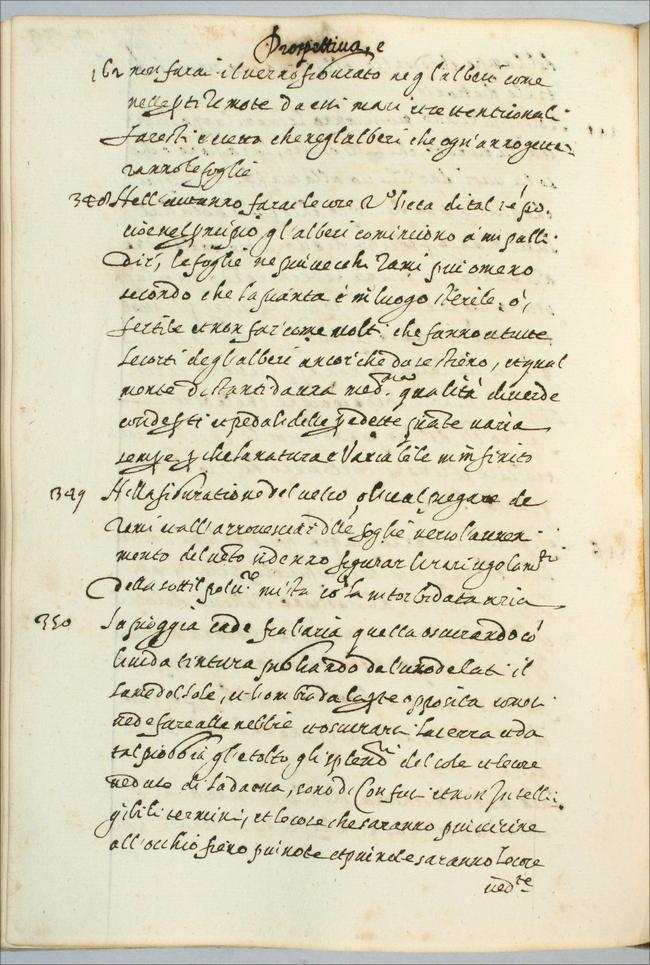 Prospettiva, e
162 non farai il verno figurato neg l'alberi come
nelle parti remote da chi mari
faresti che negl'alberi che ogn'anno getta-
ranno le foglie
348 Nell'autunno farai le cose 2º
cioè nel principio gl'alberi cominciono à impalli-
dir, le foglie ne più vecchi rami più o meno
secondo che la pianta è in luogo sterile, ò,
fertile et non far come molti che fanno a tutte
le sorti degl'alberi ancor che da se sieno, et qual
mente distanti d'una med.ma qualità di verde
et pedali delle predette piante varia
sempre perche la natura è variabile in infinito
349 Nella figuratione del vento, oltre al piegare de
rami et all'arrovesciar delle foglie verso l'avveni-
mento del vento si denno figurar li
della sottil polve mista con la intorbidata aria
350 La pioggia cade fra l'aria quella oscurando cō
livida tintura pigliando dal'uno de lati il
lume del sole, et l'ombra da la parte opposita come si
vede fare alle nebbie et oscurarsi la terra et da
tal pioggia gl'è tolto gli splendori del sole et le cose
vedute di là da essa, sono di confusi et non intelli-
gibili termini, et le cose che saranno più vicine
all'occhio fieno più note et più note saranno le cose
ved.te